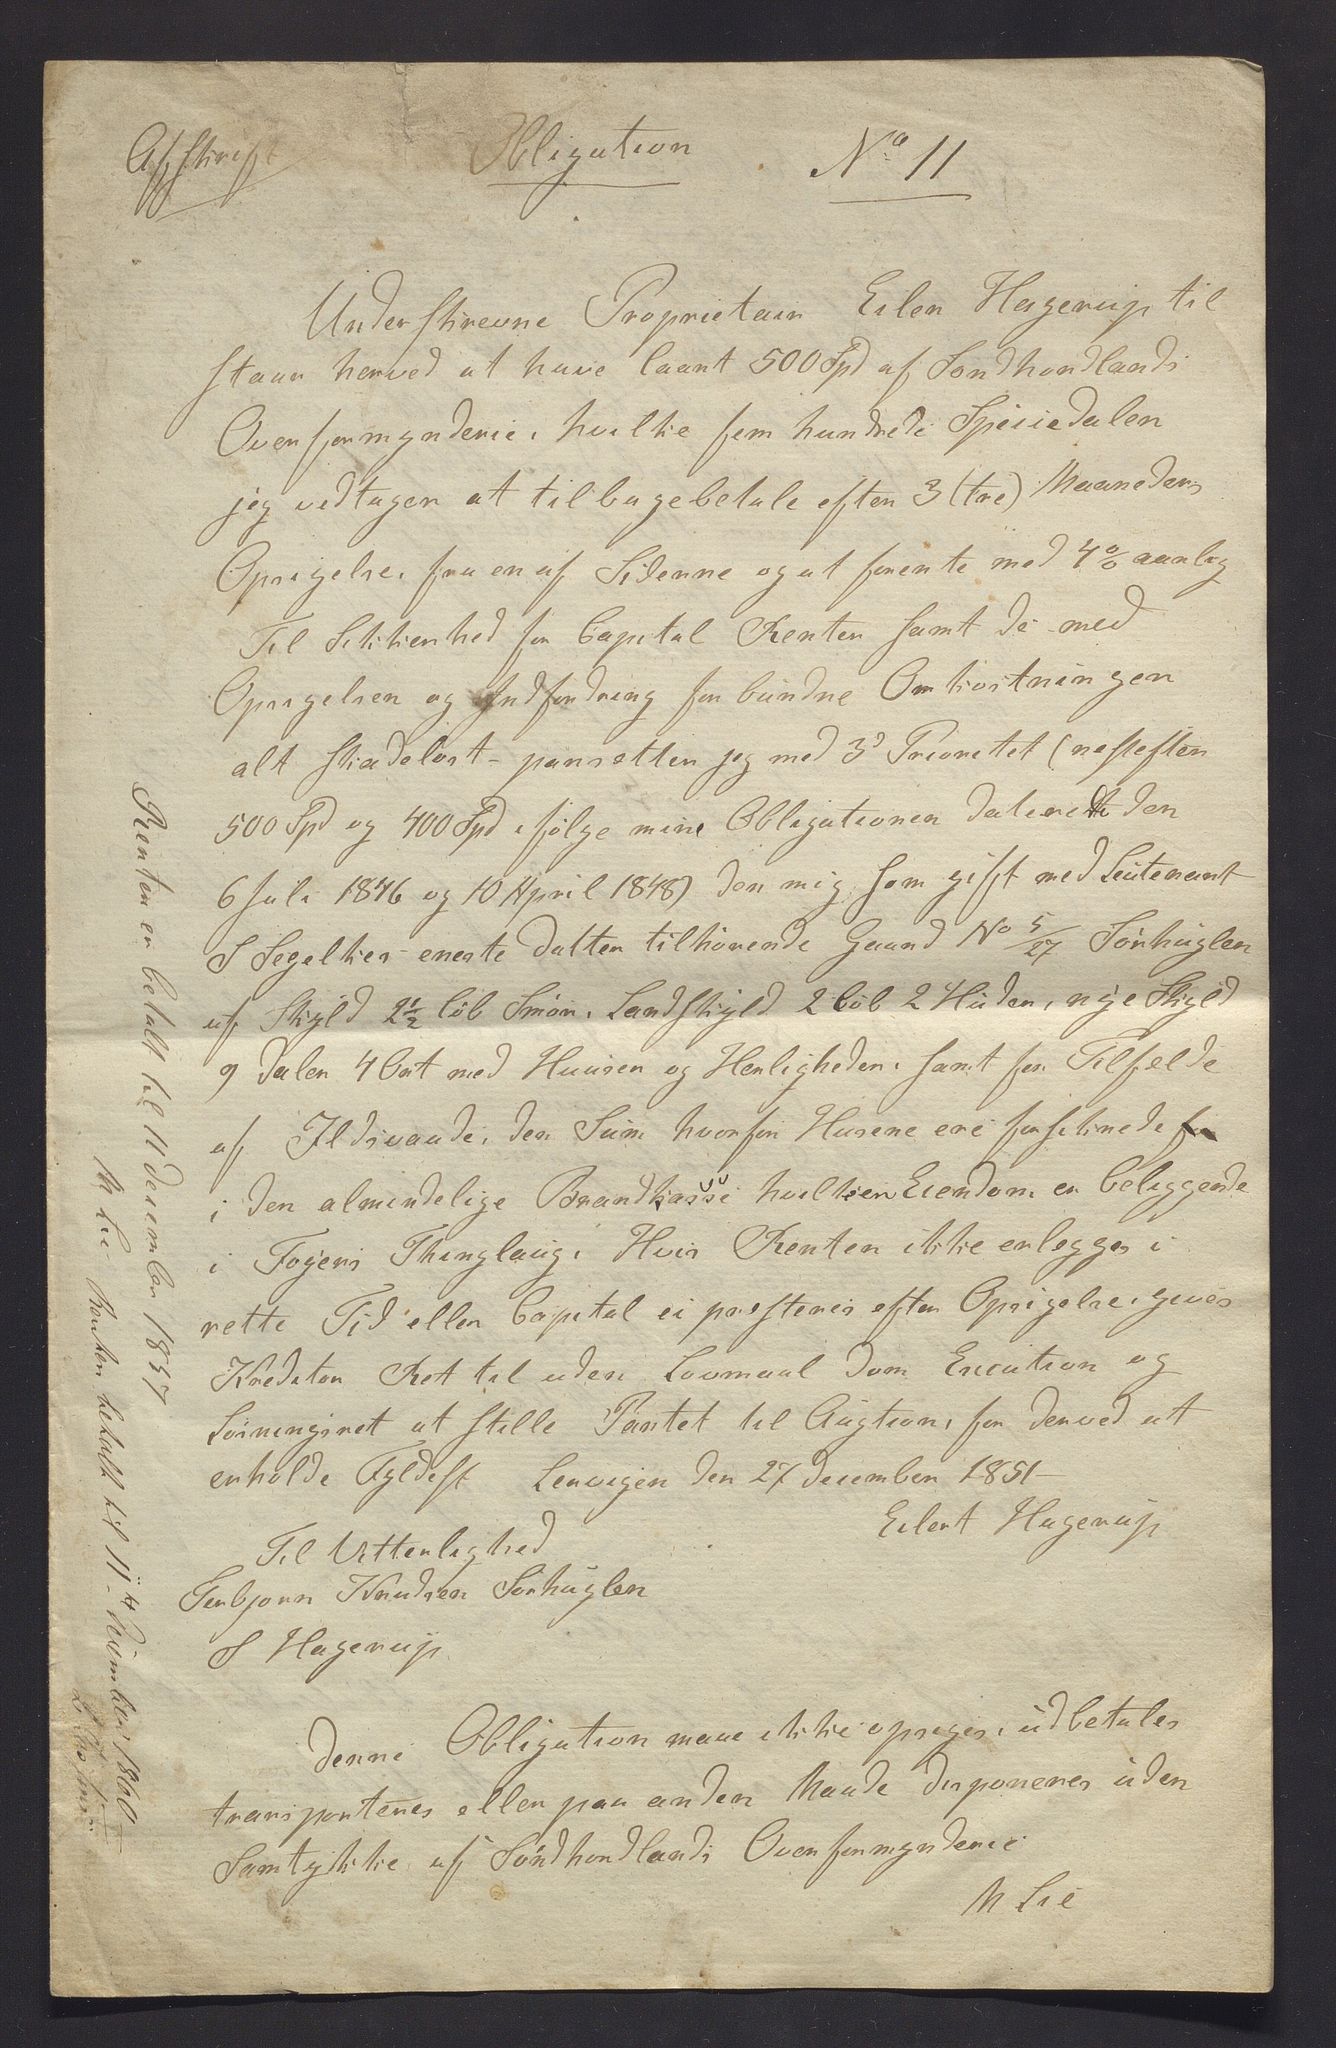 Afskrift
Obligation
No 11
Underskrevne Proprietair Eiler Hagerup til
staar herved at have laant 500 Spd af Søndhordlands
Overformynderie, hvilke fem hundrede Speciedaler
jeg vedtager at tilbagebetale efter 3 (tre) Maaneders
Opsigelse, fra en af Siderne og at forrente med 4 % aarlig
Til Sikkerhed for Capital Renter samt de med
Opsigelsen og Indfordring forbundne Omkostninger
alt skadeløst – pansetter jeg med 3d Prioritet (nest efter
500 Spd og 400 Spd ifølge mine Obligationer daterede den
6 Juli 1846 og 10 April 1848) den mig som gift med Leutenant
S Segelkes eneste Datter tilhørende Gaard No 5/27 Sørhuglen
af Skyld 2 1/2 løb Smør, Landskyld 2 løb 2 Huder, nye Skyld
9 daler 4 ort med Huuser og Herligheder, samt for Tilfelde
af Ildsvaade, den Sum hvorfor Husene ere forsikrede
i den almindelige Brandkasse hvilken Eiendom er beliggende
i Føyens Thinglaug. Hvis Renten ikke erlegges i
rette Tid eller Capital ei presteres efter Opsigelse, gives
Kreditor Ret til uden Lovmaal Dom Execution og
Løsningsret at stille Pantet til Augtion, for derved at
erholde Fyldest Lervigen den 27 december 1851 –
Eilert Hagerup
Til Vitterlighed
Torbjørn Knudsen Sørhuglen
S Hagerup
Denne Obligation maae ikke opsiges, udbetales
transporteres eller paa anden Maade disponeres uden
Samtykke af Søndhordlands Overformynderie
M Lie
Renter er betalt til 11 december 1857
M Lie Renten betalt til 11te december 1860